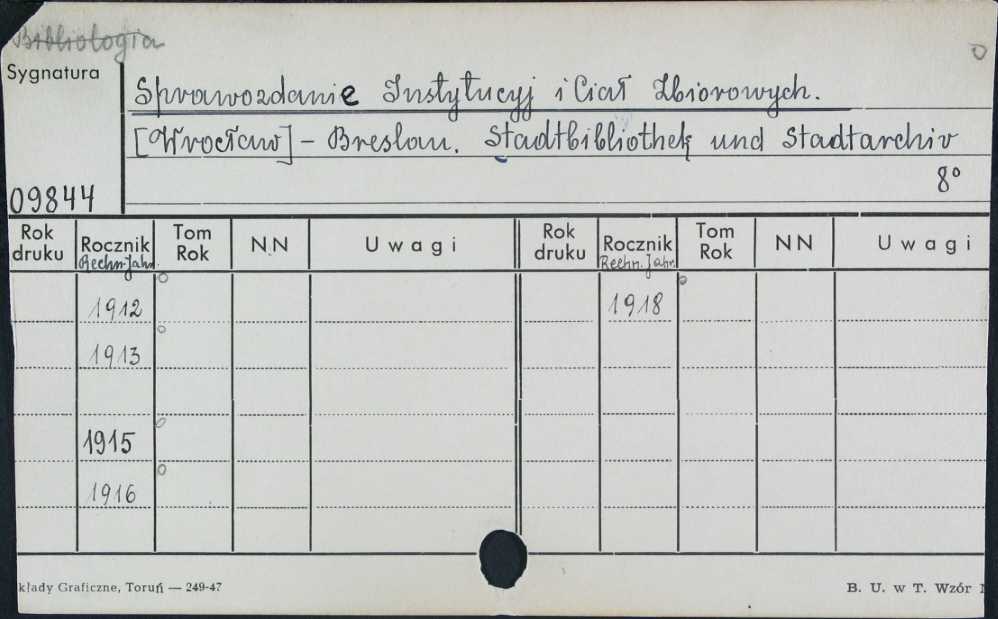 Bibliologia
Sygnatura
Sprawozdanie Instytucyj i Ciał Zbiorowych.
[Wrocław] - Breslau. Stadtbibliothek und Stadtarchiv
8°
09844
Rok druku Rocznik Rechn. Jahr. Tom Rok NN Uwagi Rok druku Rocznik Rechn. Jahr. Tom Rok NN Uwagi
1912 1918
1913
1915
1916
kłady Graficzne, Toruń — 249-47 B. U. w T. Wzór